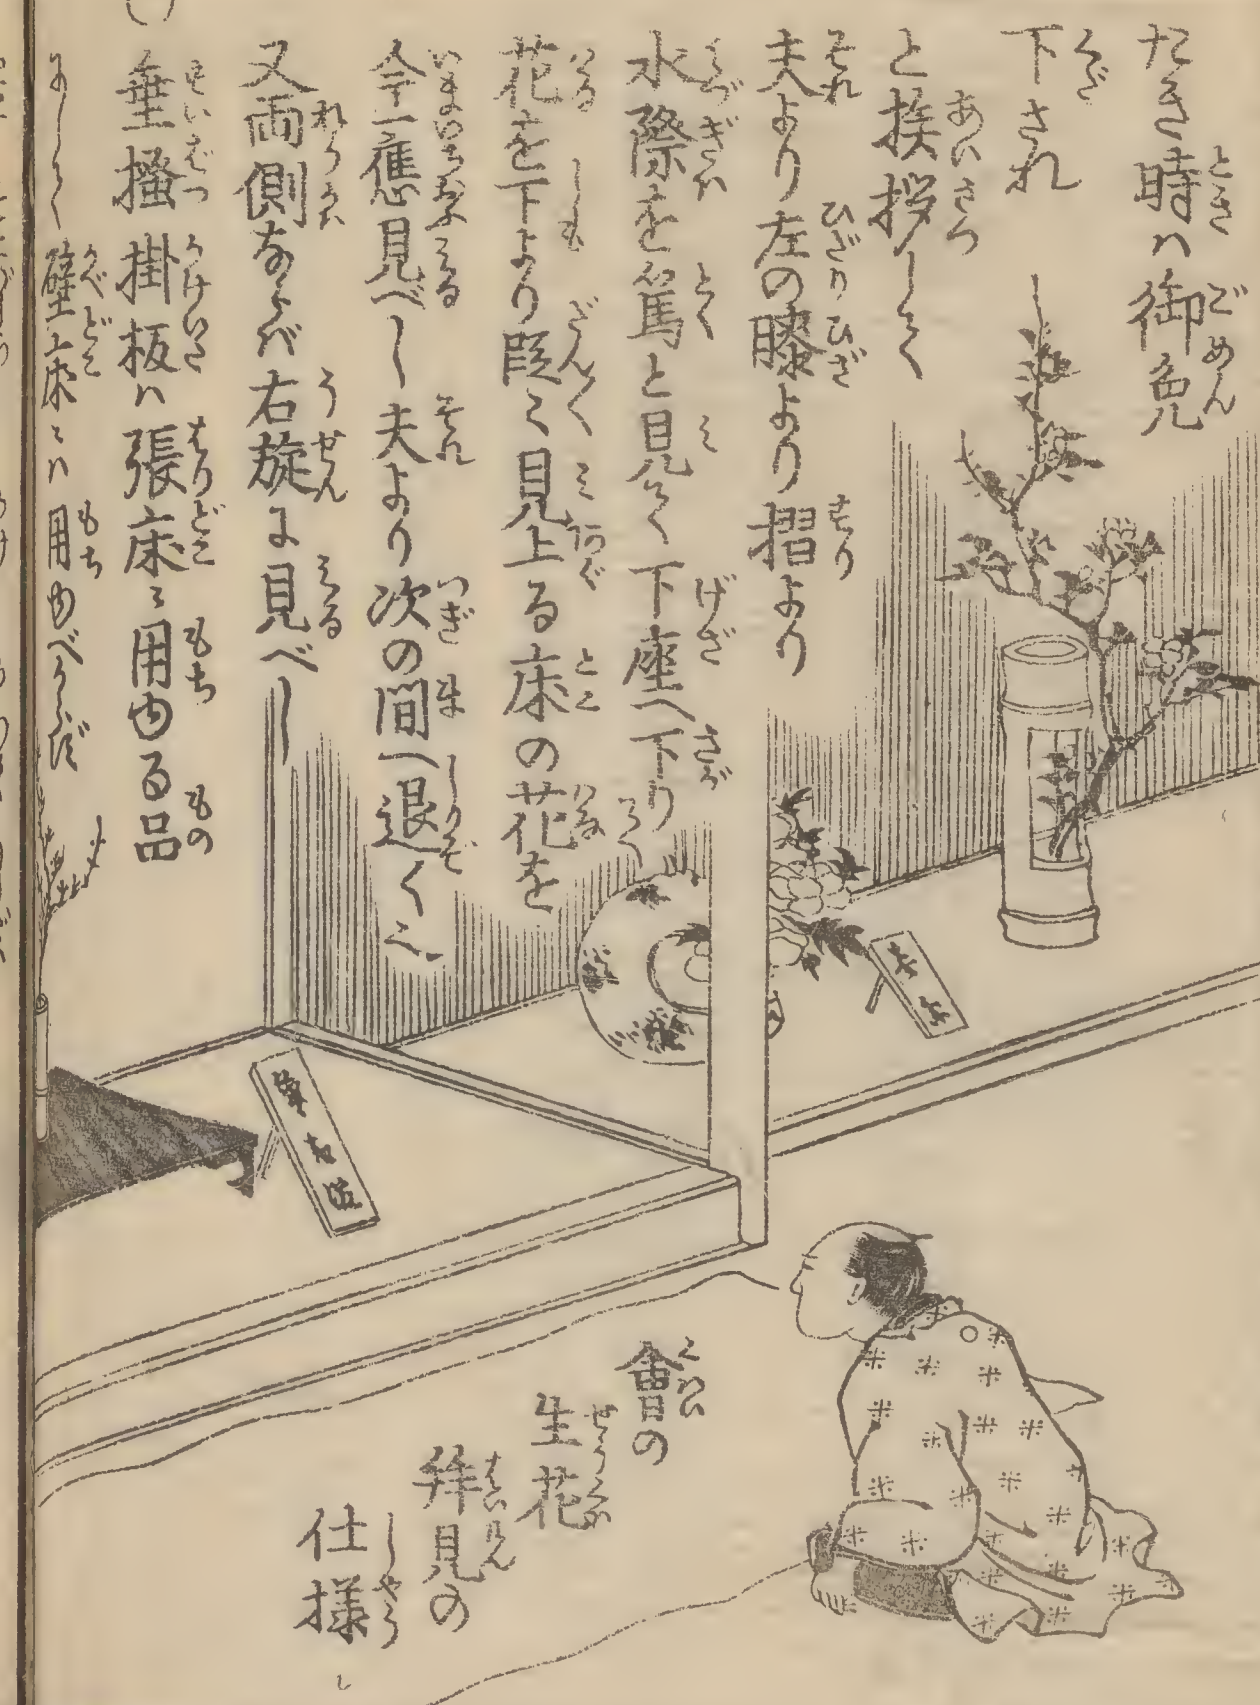 たき時ハ御免
下され
と挨拶して
夫より左の膝より摺より
水際を篤と見て下座へ下りて
花を下より段々見上る床の花を
今一應見べし夫より次の間へ退くべし
又両側ならバ右旋に見べし
垂撥掛板ハ張床ニ用ゆる品
にして壁床ニハ用ゆべからず
會の
生花
拝見の
仕様